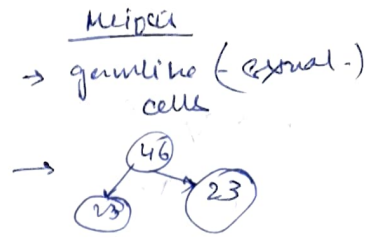 Meiosis
→ germline (- sexual -)
cells
→ 46
23 23